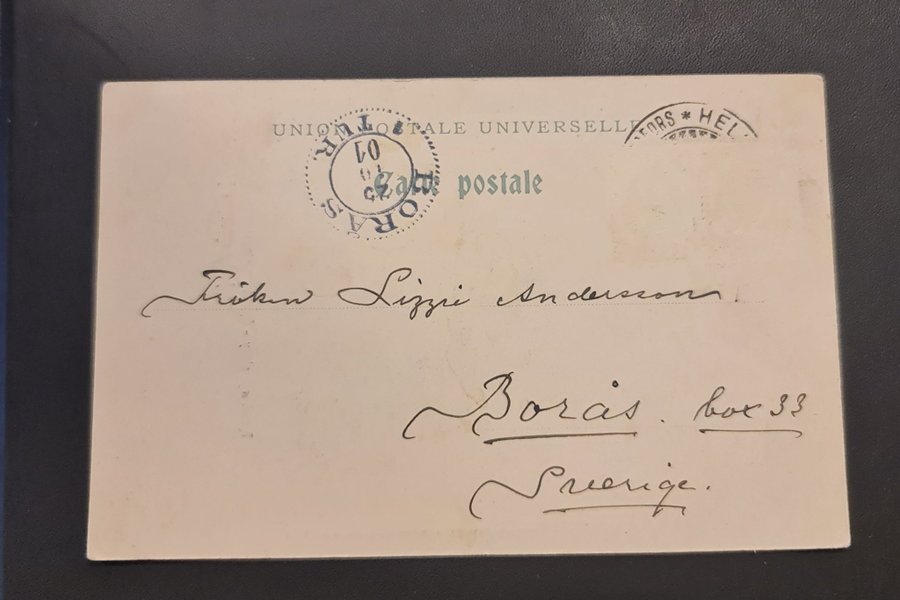 UNION POSTALE UNIVERSELLE
Carte postale
HEL
BORÅS
TUR.
01
Fröken Lizzie Andersson.
Borås. box 33
Sverige.